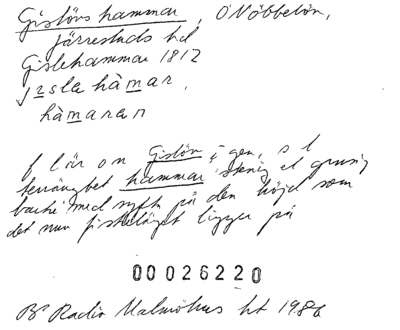 Gislövs hammar, Ö Nöbbelöv,
Järrestads hd
Gislehammar 1812
jɪsla hàmar,
hàmaran
f l är o n Gislöv i gen, s t
terrängbet hammar 'stenig el grusig
backe' med syftn på den höjd som
det nun fiskeläget ligger på
00026220
BP Radio Malmöhus ht 1986